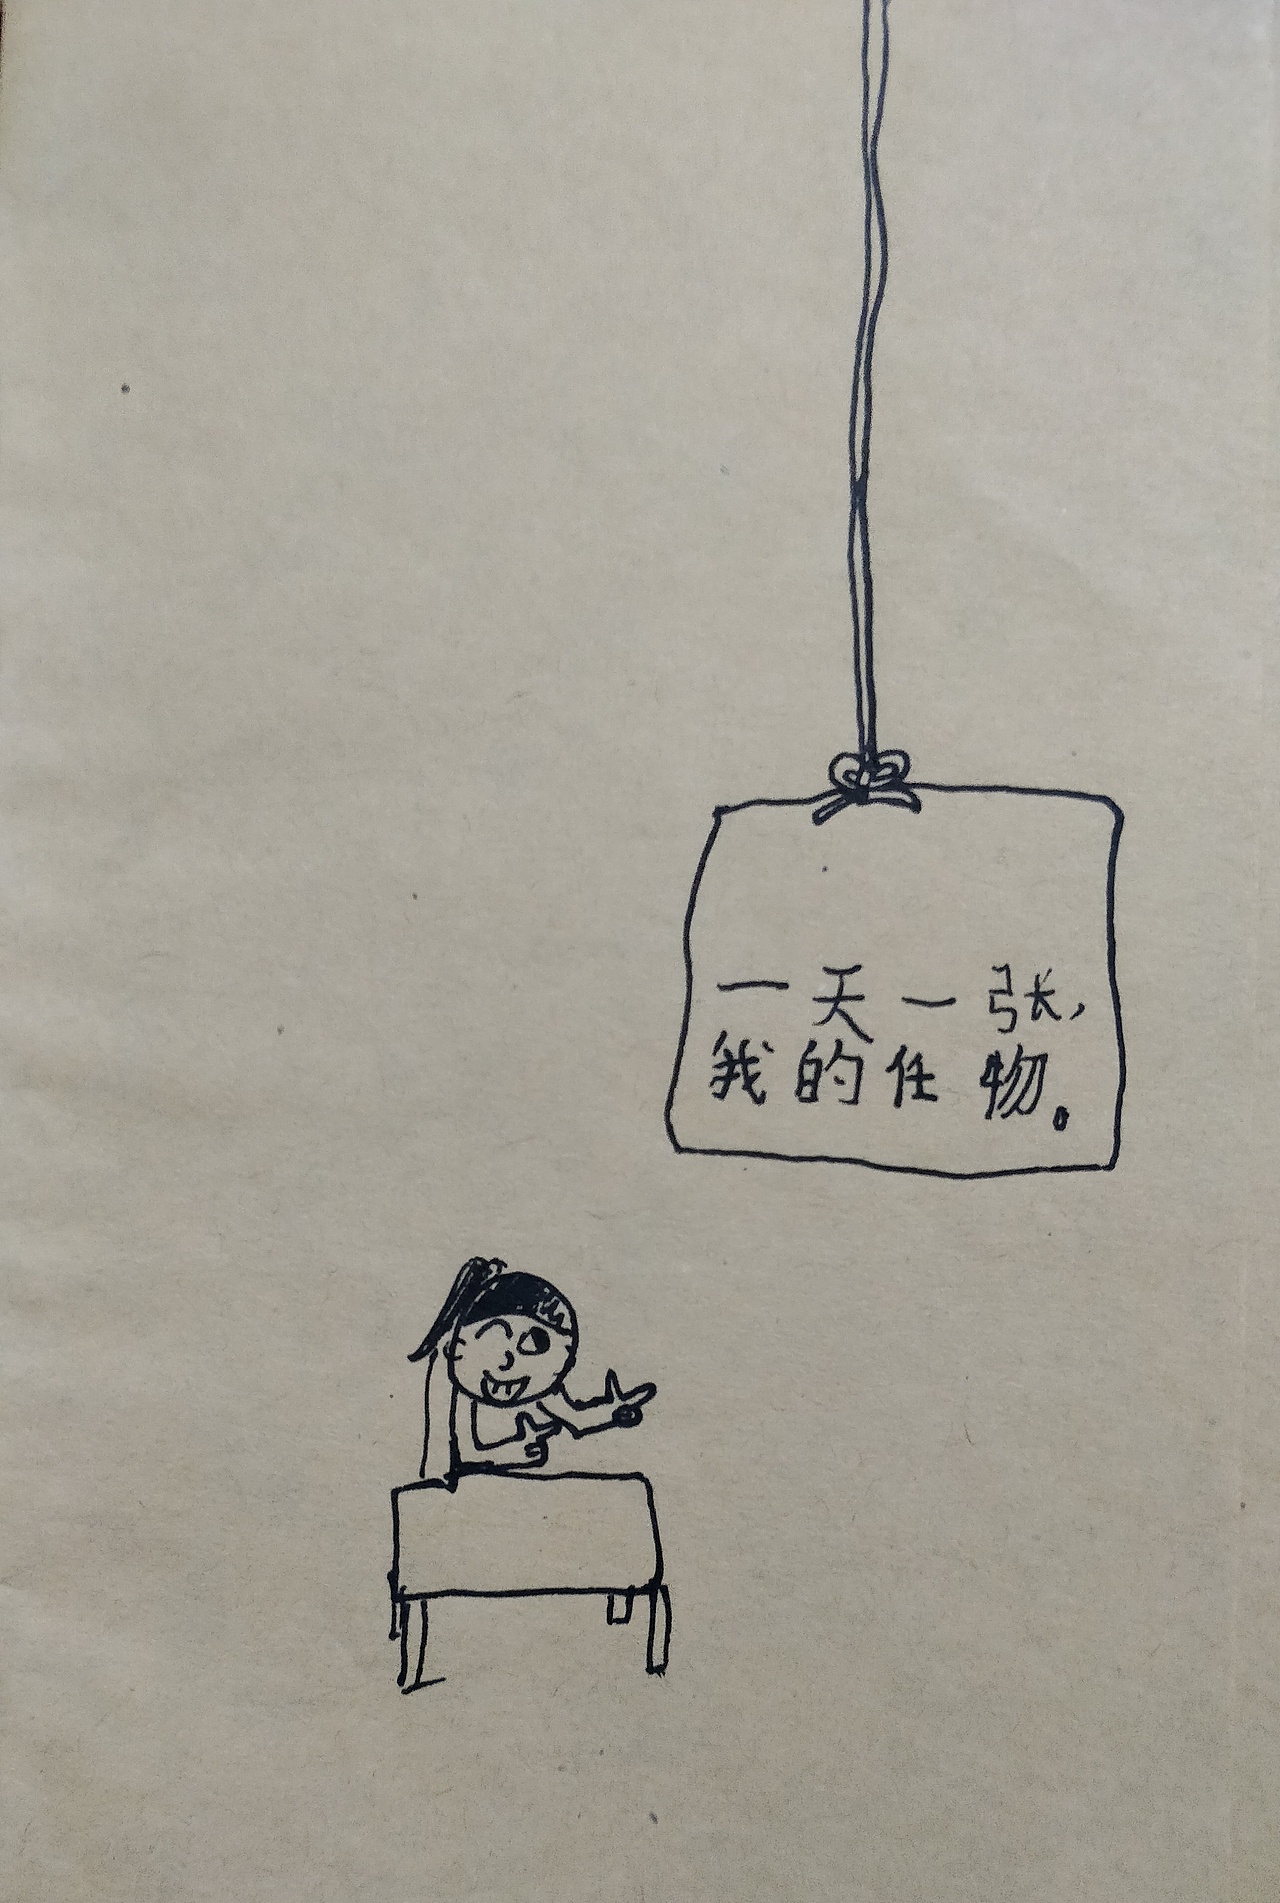 一天一张,
我的任物。